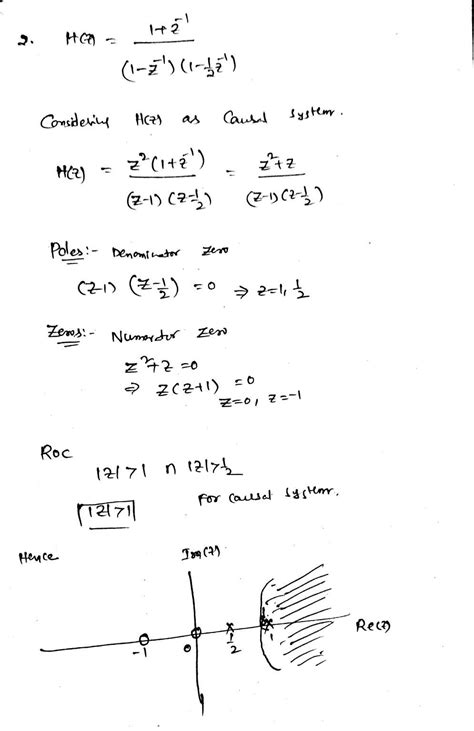 2. H(z) = 1+z⁻¹ / (1-z⁻¹)(1-½z⁻¹)
Considering H(z) as Causal System.
H(z) = z²(1+z⁻¹) / (z-1)(z-½) = z²+z / (z-1)(z-½)
Poles:- Denominator zero
(z-1) (z-½) = 0 ⇒ z=1, ½
Zeros:- Numerator zero
z²+z =0
⇒ z(z+1) =0
z=0, z=-1
ROC
|z|>1 ∩ |z|>½
|z|>1 For Causal System.
Hence Im(z)
-1 0 ½ 1 Re(z)